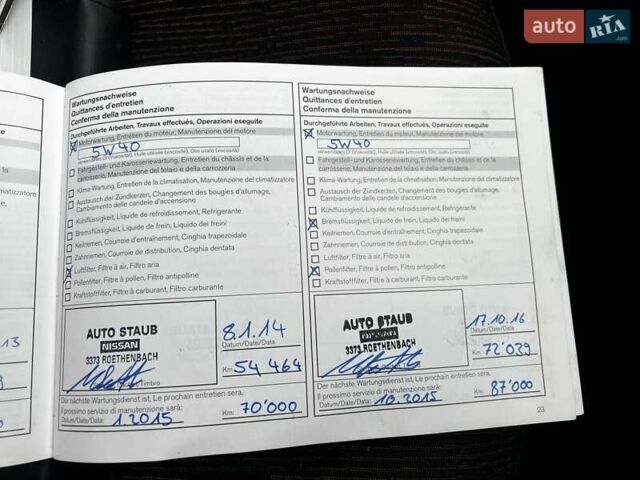 auto RIA .com
Wartungsnachweise
Quittances d'entretien
Conferma della manutenzione
Durchgeführte Arbeiten, Travaux effectués, Operazioni eseguite
Motorwartung, Entretien du moteur, Manutenzione del motore
5W40
verwendetes Öl (Viskosität), Huile utilisée (viscosité), Olio usato (viscosità)
Fahrgestell- und Karosseriewartung, Entretien du châssis et de la
carrosserie, Manutenzione del telaio e della carrozzeria
Klima-Wartung, Entretien de la climatisation, Manutenzione del climatizzatore
Austausch der Zündkerzen, Changement des bougies d'allumage,
Cambiamento delle candele d'accensione
Kühlflüssigkeit, Liquide de refroidissement, Refrigerante
Bremsflüssigkeit, Liquide de frein, Liquido dei freni
Keilriemen, Courroie d'entraînement, Cinghia trapezoidale
Zahnriemen, Courroie de distribution, Cinghia dentata
Luftfilter, Filtre à air, Filtro aria
Pollenfilter, Filtre à pollen, Filtro antipolline
Kraftstofffilter, Filtre à carburant, Filtro carburante
AUTO STAUB
NISSAN
3373 ROETHENBACH
Timbro
8.1.14
Datum/Date/Data
Km 54 464
Der nächste Wartungsdienst ist, Le prochain entretien sera,
Il prossimo servizio di manutenzione sarà:
Datum/Date/Data: 1.2015 Km: 70'000
Wartungsnachweise
Quittances d'entretien
Conferma della manutenzione
Durchgeführte Arbeiten, Travaux effectués, Operazioni eseguite
Motorwartung, Entretien du moteur, Manutenzione del motore
5W40
verwendetes Öl (Viskosität), Huile utilisée (viscosité), Olio usato (viscosità)
Fahrgestell- und Karosseriewartung, Entretien du châssis et de la
carrosserie, Manutenzione del telaio e della carrozzeria
Klima-Wartung, Entretien de la climatisation, Manutenzione del climatizzatore
Austausch der Zündkerzen, Changement des bougies d'allumage,
Cambiamento delle candele d'accensione
Kühlflüssigkeit, Liquide de refroidissement, Refrigerante
Bremsflüssigkeit, Liquide de frein, Liquido dei freni
Keilriemen, Courroie d'entraînement, Cinghia trapezoidale
Zahnriemen, Courroie de distribution, Cinghia dentata
Luftfilter, Filtre à air, Filtro aria
Pollenfilter, Filtre à pollen, Filtro antipolline
Kraftstofffilter, Filtre à carburant, Filtro carburante
AUTO STAUB
3373 ROETHENBACH
17.10.16
Datum/Date/Data
Km 72 039
Der nächste Wartungsdienst ist, Le prochain entretien sera,
Il prossimo servizio di manutenzione sarà:
Datum/Date/Data: 10.2015 Km: 87'000
23